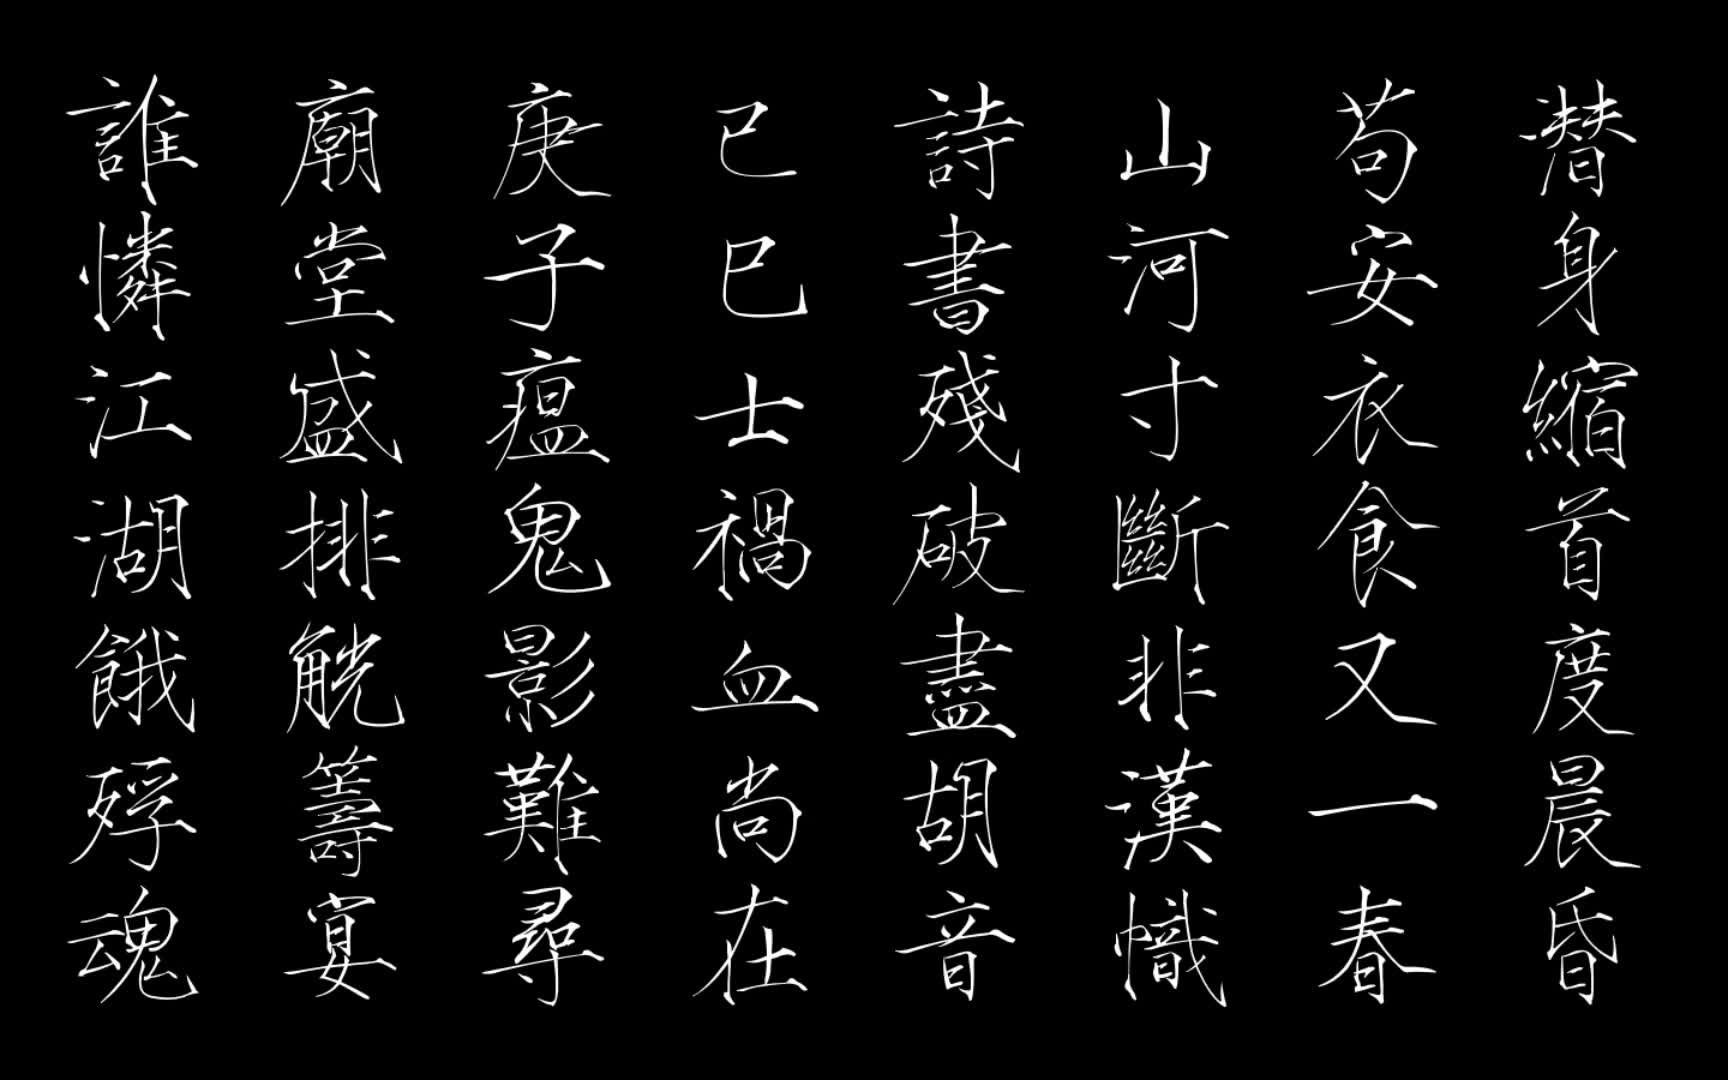 潛身縮首度晨昏
苟安衣食又一春
山河寸斷非漢幟
詩書殘破盡胡音
己巳士禍血尚在
庚子瘟鬼影難尋
廟堂盛排觥籌宴
誰憐江湖餓殍魂